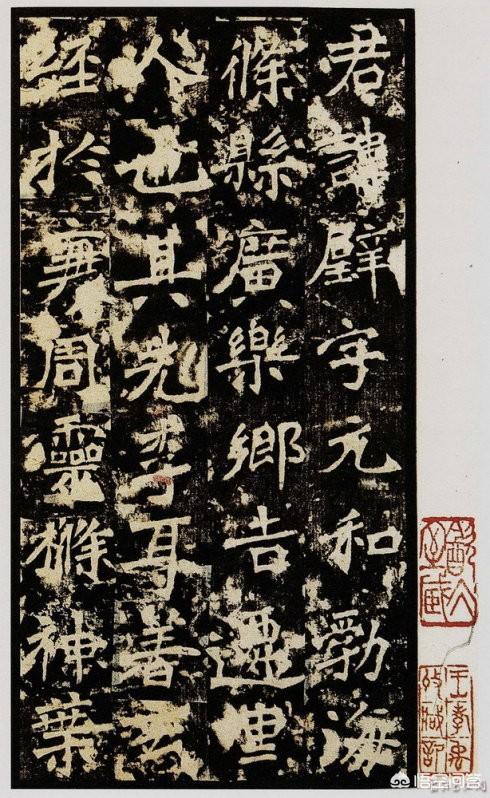 君諱璧字元和勃海
條縣廣樂鄉吉遷里
人也其先李耳著玄
經於衰周靈樤神葉
悟空问答